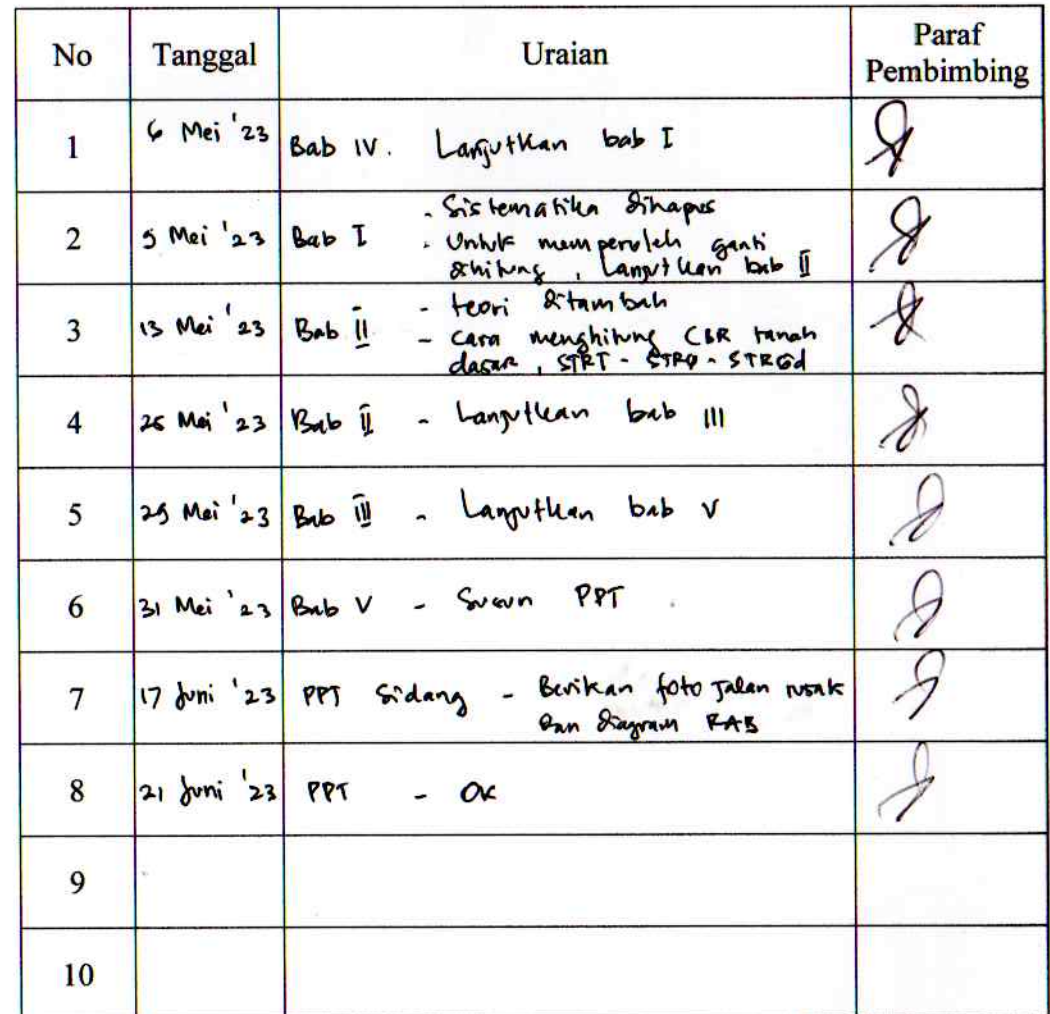 No Tanggal Uraian Paraf Pembimbing
1 6 Mei '23 Bab IV. Lanjutkan bab I
2 9 Mei '23 Bab I - Sistematika dihapus
- Untuk memperoleh ganti
dihitung, Lanjutkan bab II
3 13 Mei '23 Bab II - teori ditambah
- cara menghitung CBR tanah
dasar, STRT - STRQ - STRGd
4 25 Mei '23 Bab II - Lanjutkan bab III
5 29 Mei '23 Bab III - Lanjutkan bab V
6 31 Mei '23 Bab V - Susun PPT
7 17 Juni '23 PPT Sidang - Berikan foto Jalan rusak
dan diagram RAB
8 21 Juni '23 PPT - OK
9
10